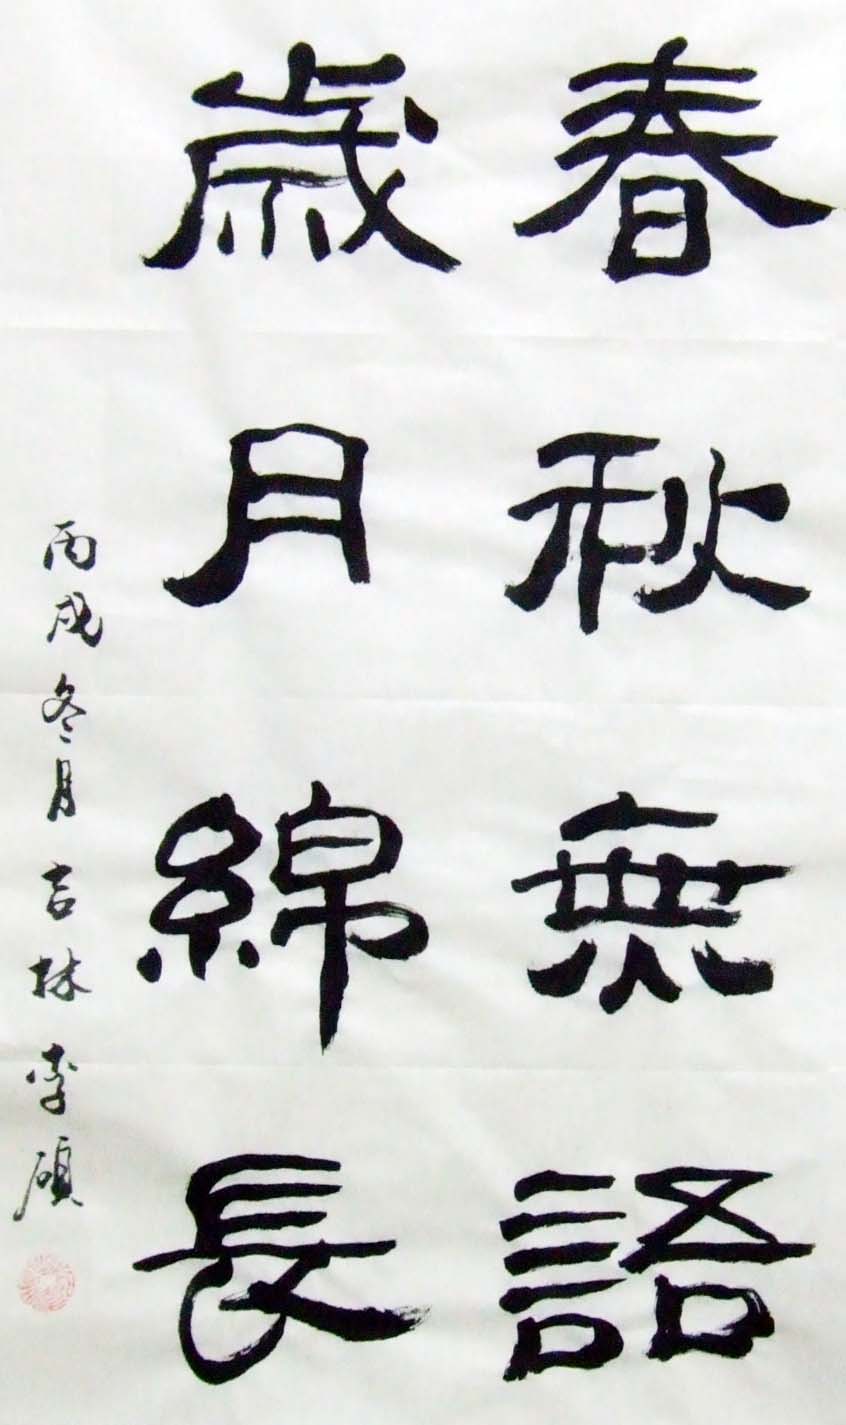 春秋無語
歳月綿長
丙戌冬月吉林李碩